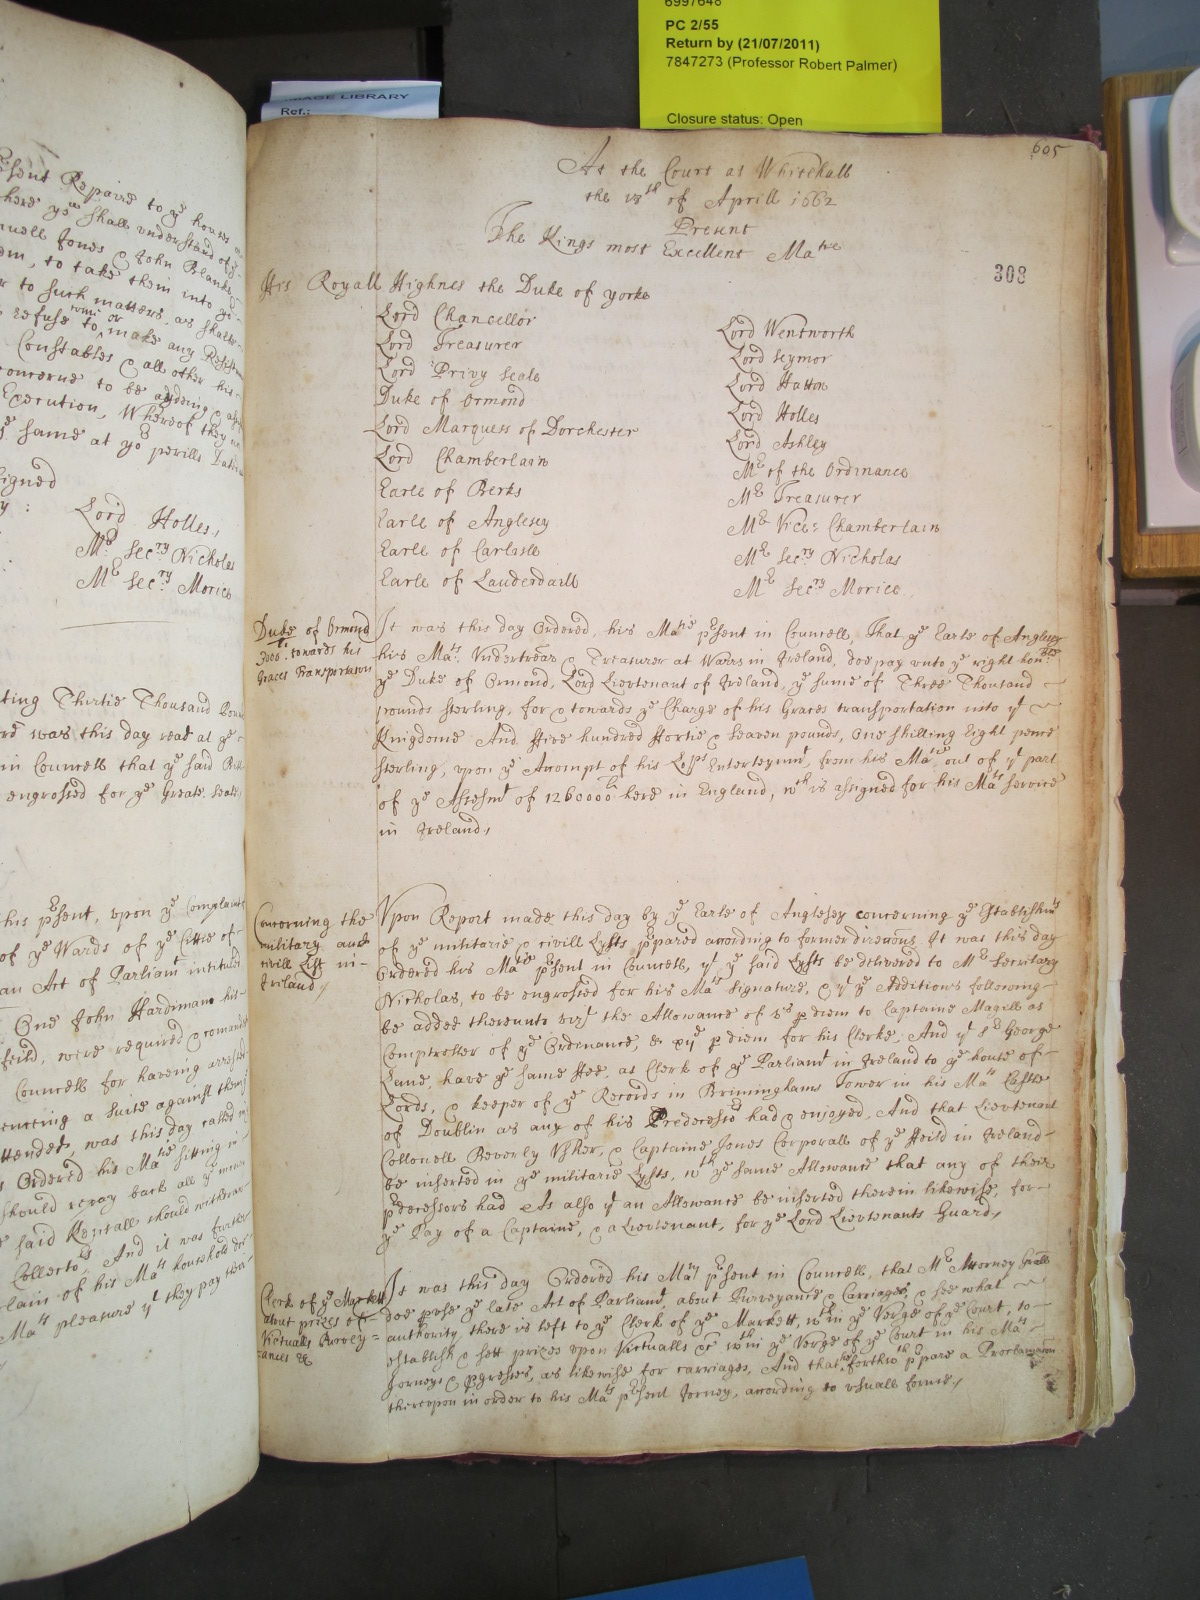 6997648
PC 2/55
Return by (21/07/2011)
7847273 (Professor Robert Palmer)
Closure status: Open
IMAGE LIBRARY
Ref.:
psent Repaire to ye houses
here yow shall understand of
Jones & John Blanke
to take them into
or to such matters as shalbe
refuse to come or make any Resist
Constables & all other his
concerne to be aydeing &
Execution, Whereof they
ye same at yor perills
signed
y :
Lord Holles,
Mr Secry Nicholas
Mr Secry Morice
ting Thirtie Thousand
was this day read at ye
in Councell that ye said
engrossed for ye Greate Seale
his psent, upon ye Complaint
of ye Wards of ye Cittie of
an Act of Parliamt intituled
One John Hardimans his
feild, were required & comanded
Councell for haveing arrested
a suite against them
ttended, was this day called in
Ordered his Matie sitting in
should repay back all ye
said Kentall should withdraw
Collectors, And it was further
lain of his Mats household
Mats pleasure yt they pay
605
308
At the Court at Whitehall
the 18th of Aprill 1662
Present
The Kings most Excellent Matie
His Royall Highnes the Duke of yorke
Lord Chancellor
Lord Treasurer
Lord Privy Seale
Duke of Ormond
Lord Marquess of Dorchester
Lord Chamberlain
Earle of Berks
Earle of Anglesey
Earle of Carlisle
Earle of Lauderdaill
Lord Wentworth
Lord Seymor
Lord Hatton
Lord Holles
Lord Ashley
Mr of the Ordinance
Mr Treasurer
Mr Vice: Chamberlain
Mr Secry Nicholas
Mr Secry Morice
Duke of Ormond
3000li towards his
Graces Transportation
It was this day Ordered, his Matie psent in Councell, That ye Earle of Anglesey
his Mats Vndertrear & Treasurer at Warrs in Ireland, doe pay unto ye right honble
ye Duke of Ormond, Lord Lieutenant of Ireland, ye sume of Three Thousand
pounds sterling, for & towards ye Charge of his Graces transportation into yt
Kingdome And ffive hundred ffortie & seaven pounds, One shilling Eight pence
sterling, upon ye Accompt of his Lops Enterteynmt, from his Matie, out of yt part
of ye Assessmt of 1260000li here in England, wch is assigned for his Mats service
in Ireland,
Concerning the
military and
civill List in
Ireland,
Vpon Report made this day by ye Earle of Anglesey concerning ye Establishmt
of ye militarie & civill Lysts ppared according to former direcons. It was this day
Ordered his Matie psent in Councell, yt ye said Lysts be delivered to Mr Secretary
Nicholas, to be engrossed for his Mats signature, & yt ye Additions following
be added thereunto vizt the Allowance of 8s p diem to Captaine Magill as
Comptroller of ye Ordinance, & xijd p diem for his Clerke, And yt Sr George
Lane, have ye same ffee, as Clerk of ye Parliamt in Ireland to ye house of
Lords, & keeper of ye Records in Brimminghams Tower in his Mats Castle
of Doublin as any of his Predecessors had & enjoyed, And that Lieutenant
Collonell Beverly Vsher, & Captaine Jones Corporall of ye ffeild in Ireland
be inserted in ye militarie Lysts, wth ye same Allowance that any of their
pdecessors had As also yt an Allowance be inserted therein likewise, for
ye Pay of a Captaine, & a Lieutenant, for ye Lord Lieutenants Guard,
Clerk of ye Markett
about prizes of
Victualls Purvey=
ances &c
It was this day Ordered his Maty psent in Councell, that Mr Attorney Grall
doe pvse ye late Act of Parliamt, about Purveyance & Carriages, & see what
authority there is left to ye Clerk of ye Markett, wthin ye Verge of ye Court, to
establish & sett prizes upon Victualls &c wthin ye Verge of ye Court in his Mats
Jorneys & pgresses, as likewise for carriages, And that he forthwth ppare a Proclamation
thereupon in order to his Mats psent Jorney, according to usuall forme,